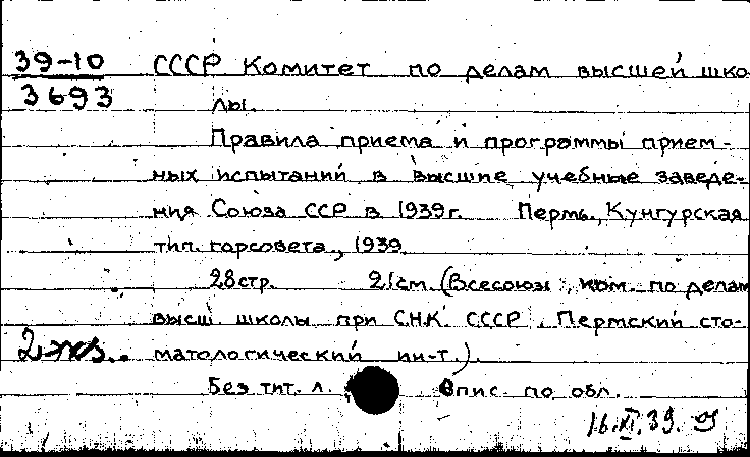 39-10
3693
СССР Комитет по делам высшей шко
лы.
Правила приема и программы прием-
ных испытаний в высшие учебные заведе-
ния Союза ССР в 1939г. Пермь, Кунгурская
тип. горсовета, 1939.
28стр. 21см. (Всесоюзн. ком. по делам
высш. школы при СНК СССР. Пермский сто-
2 экз.. матологический ин-т.).
Без тит. л. Опис. по обл.
16.XI.39.